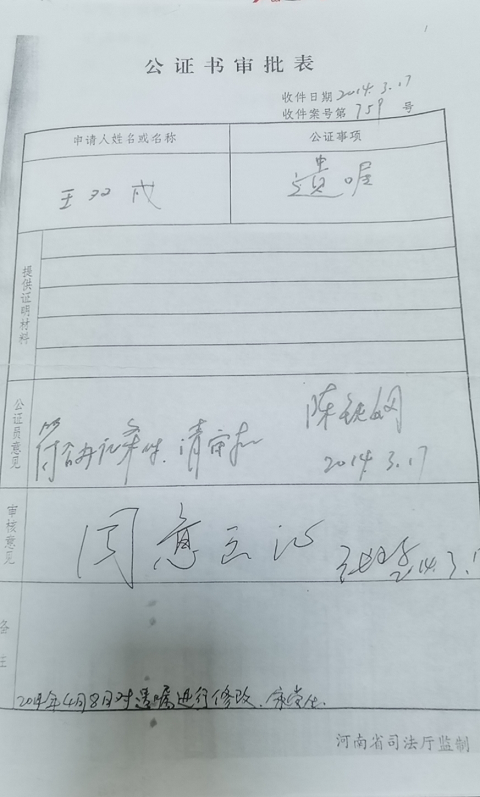 公证书审批表
收件日期 2014.3.17
收件案号第 759 号
申请人姓名或名称 公证事项
王双成 遗嘱
提供证明材料
公证员意见
符合办证条件,请审批
2014.3.17
审核意见
同意出证
2014.3.1
备注
2014年4月8日对遗嘱进行修改.
河南省司法厅监制